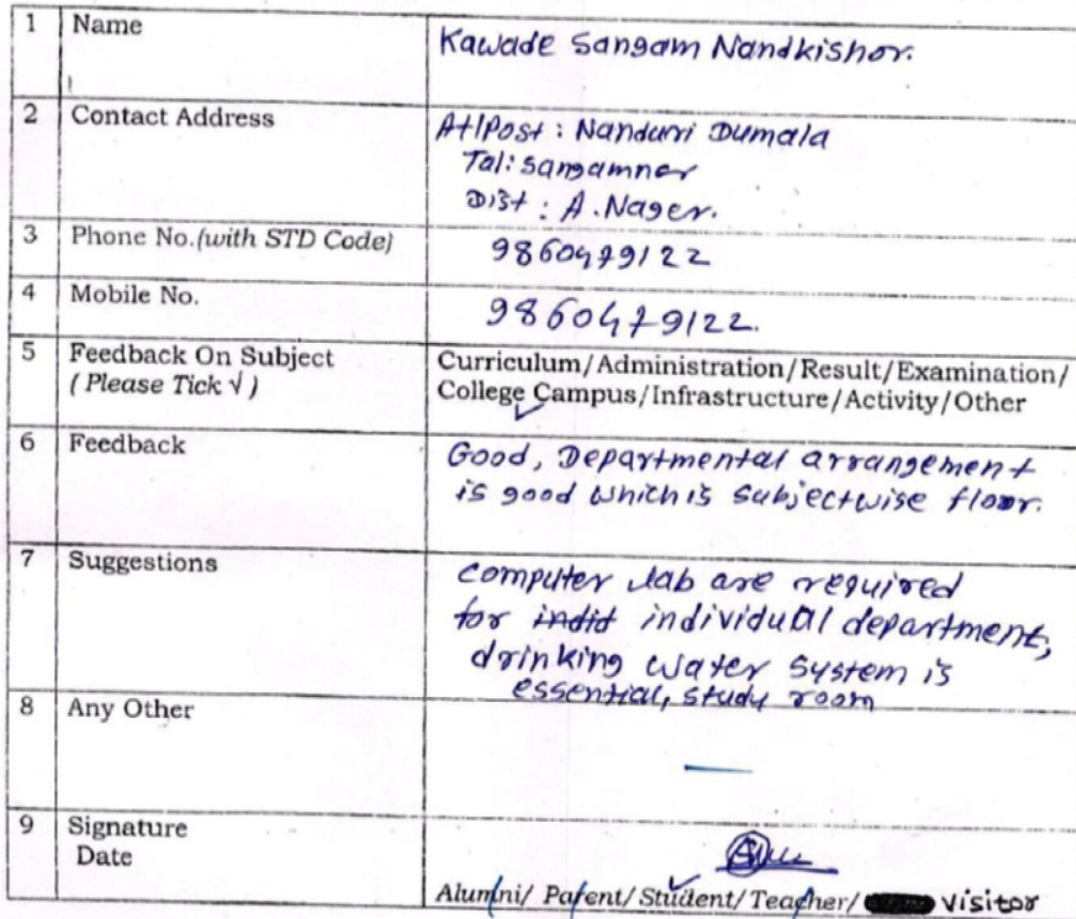 1 Name Kawade Sangam Nandkishor.
2 Contact Address At/Post : Nanduri Dumala
Tal: Sangamner
Dist : A. Nager.
3 Phone No.(with STD Code) 9860479122
4 Mobile No. 9860479122.
5 Feedback On Subject Curriculum/Administration/Result/Examination/
( Please Tick √ ) College Campus/Infrastructure/Activity/Other
6 Feedback Good, Departmental arrangement
is good which is subjectwise floor.
7 Suggestions Computer lab are required
for indid individual department,
drinking water system is
essential, study room
8 Any Other —
9 Signature
Date
Alumni/ Parent/ Student/ Teacher/ visitor